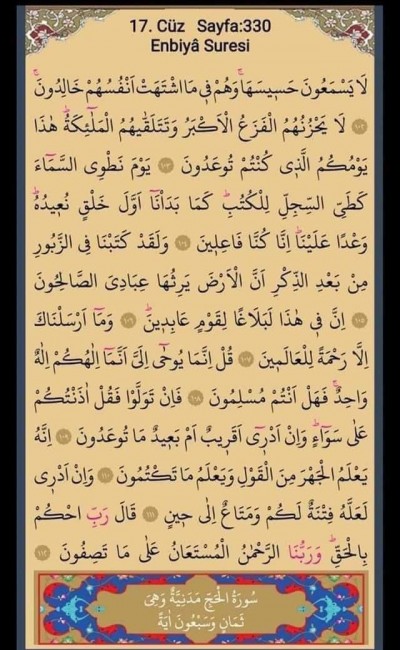 17. Cüz Sayfa:330
Enbiyâ Suresi
لَا يَسْمَعُونَ حَسِيسَهَاۚ وَهُمْ فٖي مَا اشْتَهَتْ اَنْفُسُهُمْ خَالِدُونَۚ
﴿١٠٢﴾ لَا يَحْزُنُهُمُ الْفَزَعُ الْاَكْبَرُ وَتَتَلَقّٰيهُمُ الْمَلٰٓئِكَةُۜ هٰذَا
يَوْمُكُمُ الَّذٖي كُنْتُمْ تُوعَدُونَ ﴿١٠٣﴾ يَوْمَ نَطْوِي السَّمَٓاءَ
كَطَيِّ السِّجِلِّ لِلْكُتُبِۜ كَمَا بَدَأْنَٓا اَوَّلَ خَلْقٍ نُعٖيدُهُۜ
وَعْدًا عَلَيْنَاۜ اِنَّا كُنَّا فَاعِلٖينَ ﴿١٠٤﴾ وَلَقَدْ كَتَبْنَا فِي الزَّبُورِ
مِنْ بَعْدِ الذِّكْرِ اَنَّ الْاَرْضَ يَرِثُهَا عِبَادِيَ الصَّالِحُونَ
﴿١٠٥﴾ اِنَّ فٖي هٰذَا لَبَلَاغًا لِقَوْمٍ عَابِدٖينَۜ ﴿١٠٦﴾ وَمَٓا اَرْسَلْنَاكَ
اِلَّا رَحْمَةً لِلْعَالَمٖينَ ﴿١٠٧﴾ قُلْ اِنَّمَا يُوحٰٓى اِلَيَّ اَنَّمَٓا اِلٰهُكُمْ اِلٰهٌ
وَاحِدٌۚ فَهَلْ اَنْتُمْ مُسْلِمُونَ ﴿١٠٨﴾ فَاِنْ تَوَلَّوْا فَقُلْ اٰذَنْتُكُمْ
عَلٰى سَوَٓاءٍۜ وَاِنْ اَدْرٖٓي اَقَرٖيبٌ اَمْ بَعٖيدٌ مَا تُوعَدُونَ ﴿١٠٩﴾ اِنَّهُ
يَعْلَمُ الْجَهْرَ مِنَ الْقَوْلِ وَيَعْلَمُ مَا تَكْتُمُونَ ﴿١١٠﴾ وَاِنْ اَدْرٖي
لَعَلَّهُ فِتْنَةٌ لَكُمْ وَمَتَاعٌ اِلٰى حٖينٍ ﴿١١١﴾ قَالَ رَبِّ احْكُمْ
بِالْحَقِّۜ وَرَبُّنَا الرَّحْمٰنُ الْمُسْتَعَانُ عَلٰى مَا تَصِفُونَ ﴿١١٢﴾
سُورَةُ الْحَجِّ مَدَنِيَّةٌ وَهِيَ
ثَمَانٍ وَسَبْعُونَ اٰيَةً